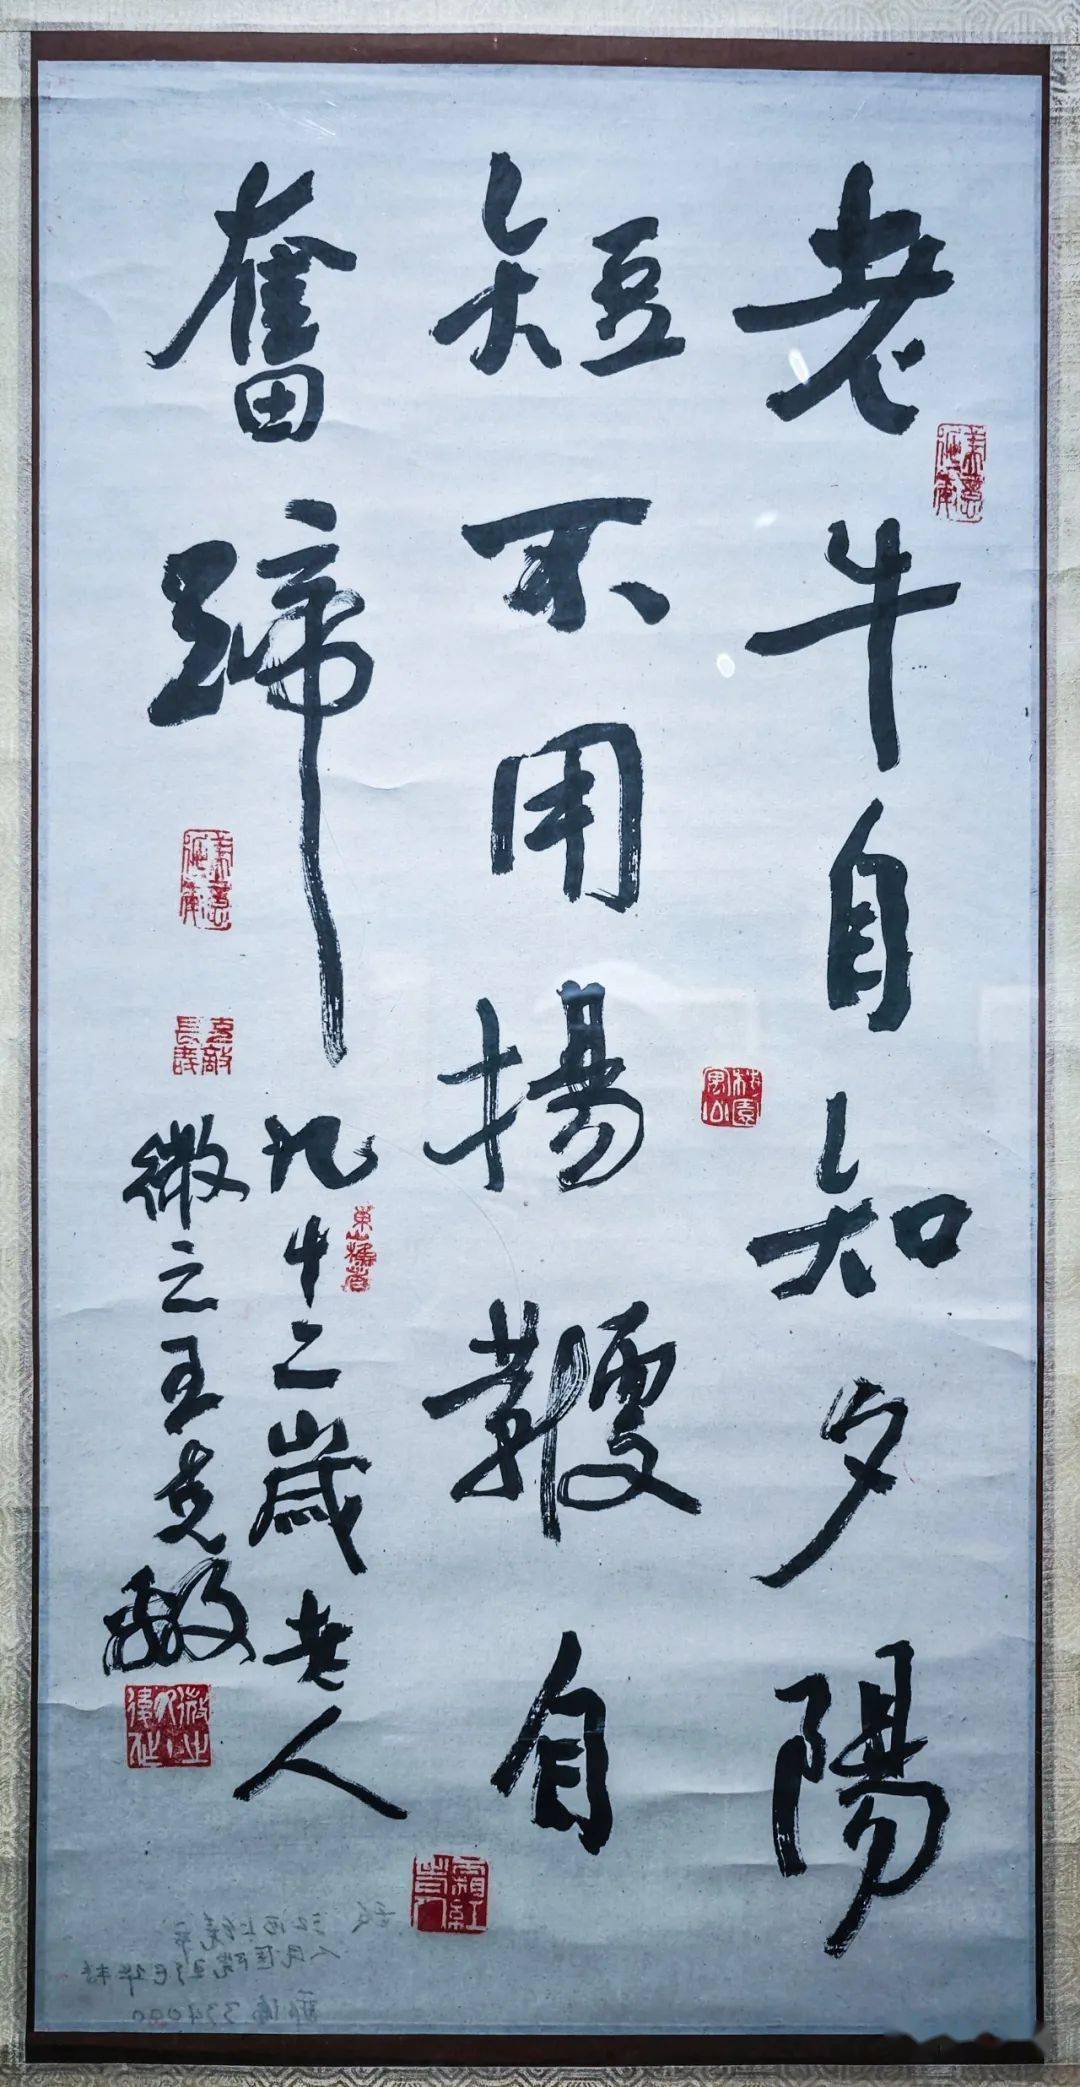 老牛自知夕陽
短不用揚鞭自
奮蹄
九十二歲老人
微之王克敵